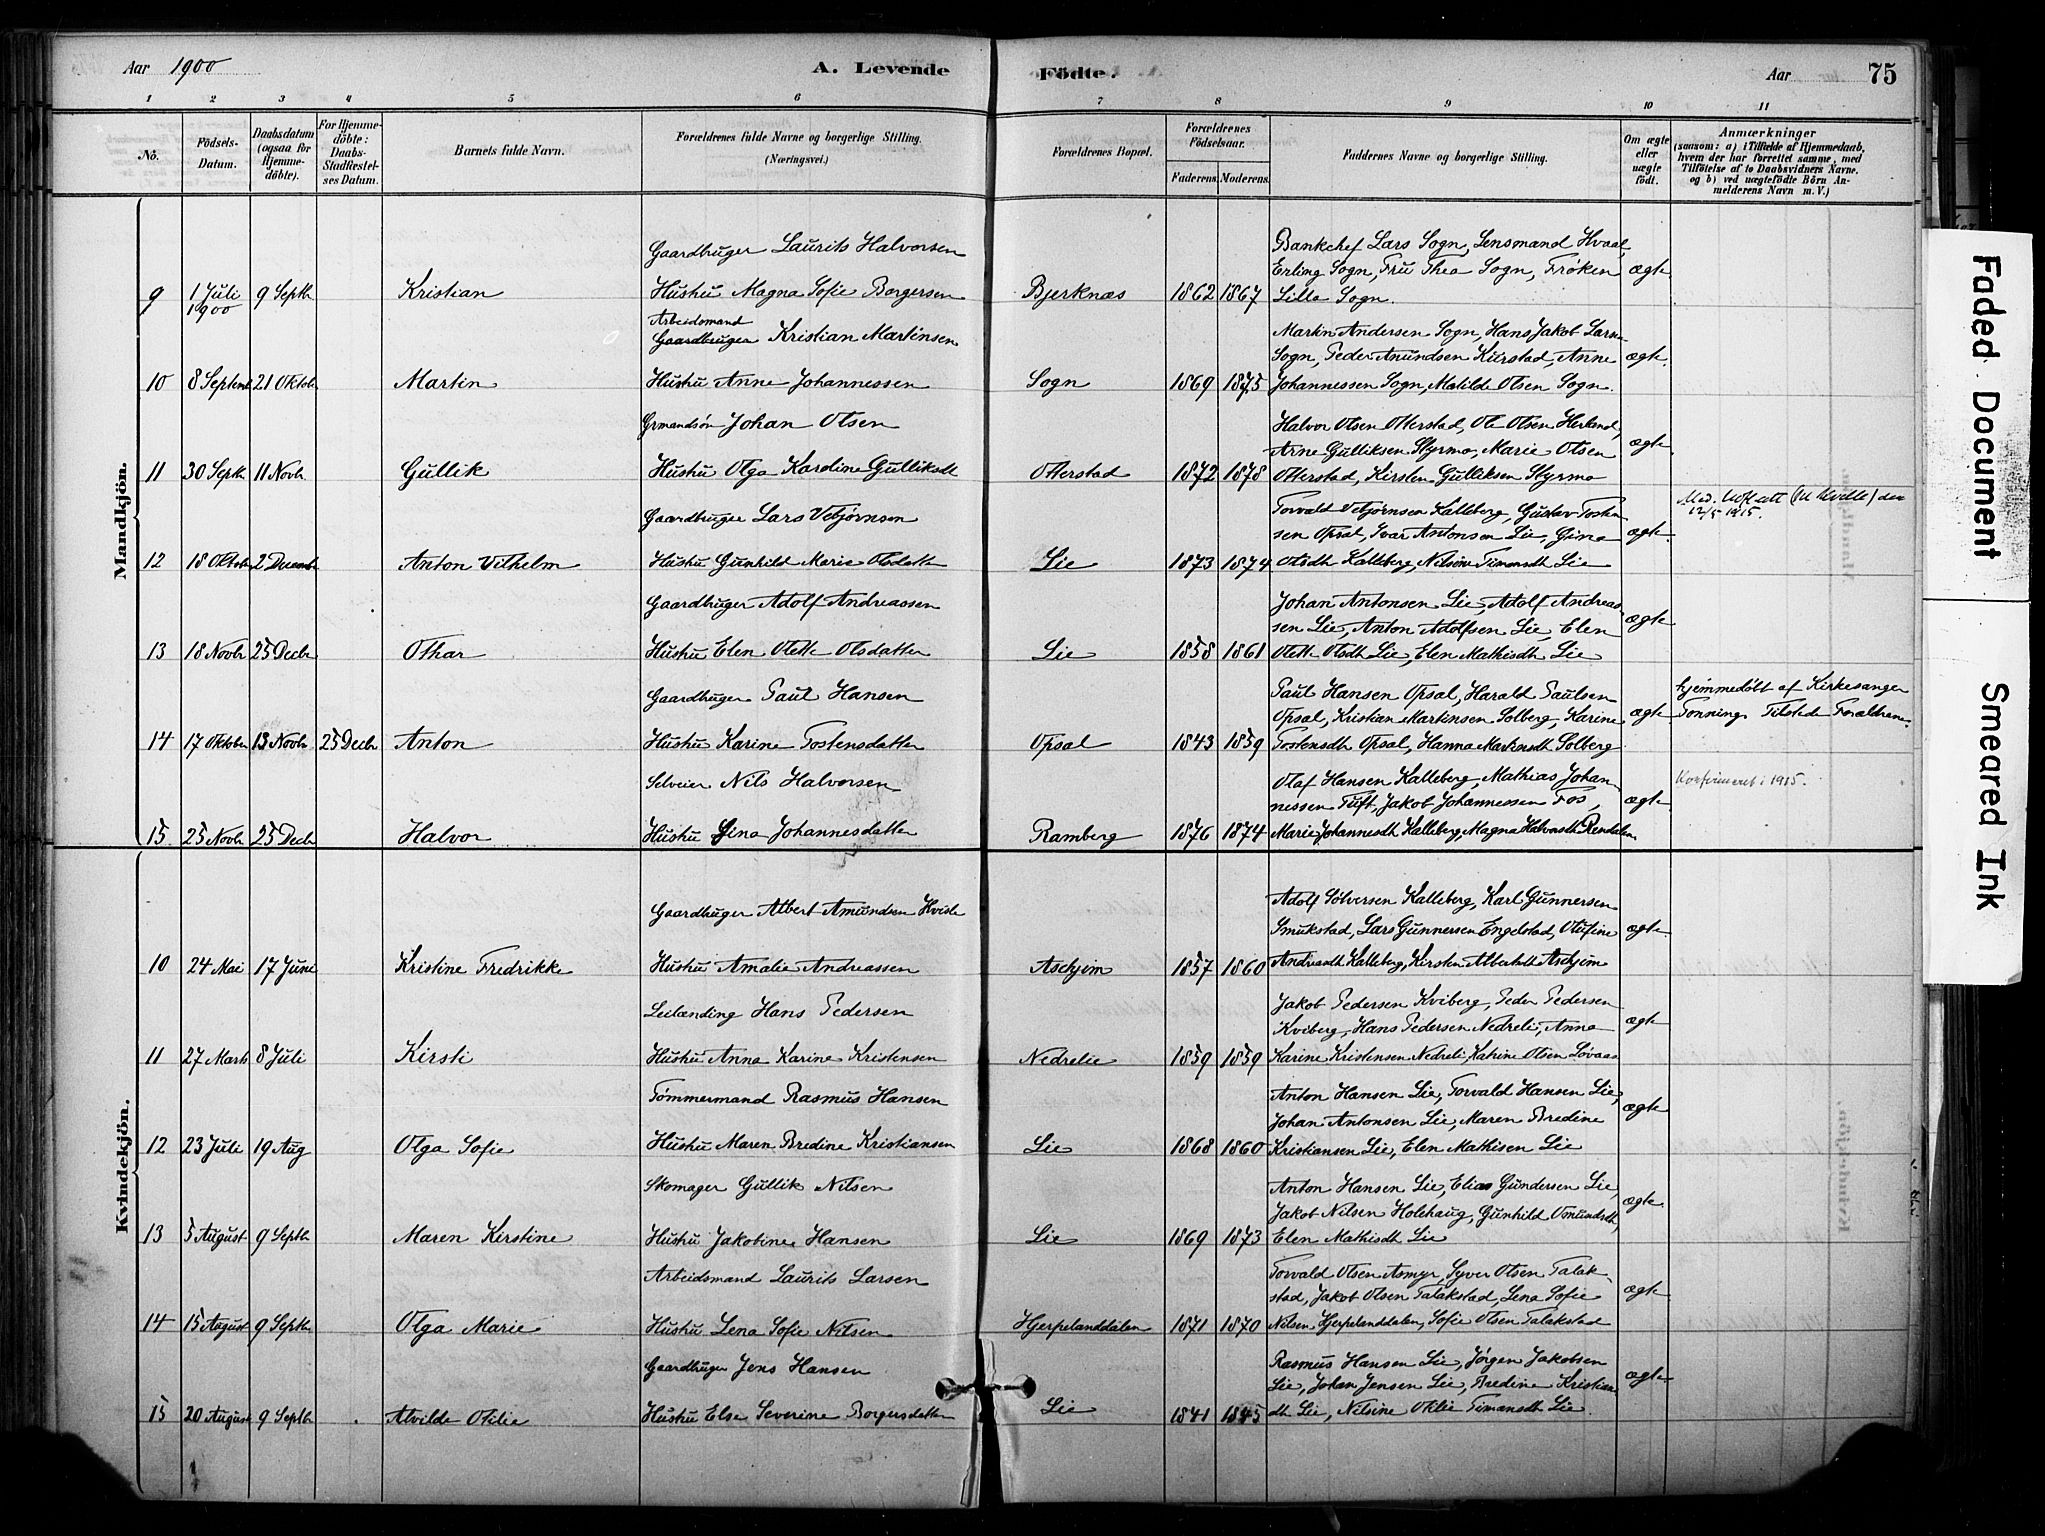 Aar 1900
A. Levende
Födte.
Aar
75
1 2 3 4 5 6 7 8 9 10 11
No.
Födsels-
Datum.
Daabsdatum
(ogsaa for
Hjemme-
döbte).
For Hjemme-
döbte:
Daabs-
Stadfæstel-
ses Datum.
Barnets fulde Navn.
Forældrenes fulde Navne og borgerlige Stilling.
(Næringsvei.)
Forældrenes Bopæl.
Forældrenes
Födselsaar.
Faderens. Moderens.
Faddernes Navne og borgerlige Stilling.
Om ægte
eller
uægte
födt.
Anmærkninger
(saasom: a) i Tilfælde af Hjemmedaab,
hvem der har forrettet samme, med
Tilföielse af to Daabsvidners Navne.
og b) ved uægtefödte Börn An-
melderens Navn m. V.)
Mandkjön.
Gaardbruger Laurits Halvorsen
Bankchef Lars Sogn, Lensmand Hvaal,
Erling Sogn, Fru Thea Sogn, Frøken ægte
9 1 Juli 9 Septb Kristian Hustru Magna Sofie Borgersen Bjerknæs 1862 1867 Lilla Sogn.
1900
Arbeidsmand
Gaardbruger Kristian Martinsen
Martin Andersen Sogn, Hans Jakob Larsen
Sogn, Peder Amundsen Kurstad, Anne ægte
10 8 Septemb 21 Oktobr Martin Hustru Anne Johannessen Sogn 1869 1875 Johannessen Sogn, Matilde Olsen Sogn.
Grmandsön Johan Olsen
Halvor Olsen Otterstad, Ole Olsen Herland,
Arne Gulliksen Styrmo, Marie Olsen ægte
11 30 Septb 11 Novb Gullik Hustru Olga Karoline Gulliksdt Otterstad 1872 1878 Otterstad, Kirsten Gulliksen Styrmo
Gaardbruger Lars Vebjørnsen
Torvald Vebjørnsen Kalleberg, Gustav Tosten-
sen Opsal, Ivar Antonsen Lie, Gina ægte
12/5 1915.
12 18 Oktobr 2 Decemb Anton Vilhelm Hustru Gunhild Marie Olsdatter Lie 1873 1874 Olsdt Kalleberg, Nilsine Timansdt Lie
Gaardbruger Adolf Andreassen
Johan Antonsen Lie, Adolf Andreas-
sen Lie, Anton Adolfsen Lie, Elen ægte
13 18 Novb 25 Decbr Othar Hustru Elen Olette Olsdatter Lie 1858 1861 Olette Olsdt Lie, Elen Mathisdt Lie
Gaardbruger Paul Hansen
Paul Hansen Opsal, Harald Paulsen
Opsal, Kristian Martinsen Solberg, Karine ægte
hjemmedöbt af Kirkesanger
Tonning. Tilstede Forældrene.
14 17 Oktober 13 Novb 25 Decb Anton Hustru Karine Tostensdatter Opsal 1843 1859 Tostensdt Opsal, Hanna Martinsdt Solberg
Selveier Nils Halvorsen
Olaf Hansen Kalleberg, Mathias Johan-
nessen Tuft, Jakob Johannessen Fos, ægte
Konfirmeret i 1915.
15 25 Novb 25 Decb Halvor Hustru Lina Johannesdatter Ramberg 1876 1874 Marie Johannesdt Kalleberg, Magna Halvorsdt Rendalen
Kvindekjön.
Gaardbruger Albert Amundsen Hvisle
Adolf Sölversen Kalleberg, Karl Gunnersen
Smukstad, Lars Gunnersen Engelstad, Olufine ægte
10 24 Mai 17 Juni Kristine Fredrikke Hustru Amalie Andreassen Aschjem 1857 1860 Andreasdt Kalleberg, Kirsten Albertsdt Aschjem
Leilænding Hans Pedersen
Jakob Pedersen Kviberg, Peder Pedersen
Kviberg, Hans Pedersen Nedrelie, Anna ægte
11 27 Marts 8 Juli Kirsti Hustru Anna Karine Kristensen Nedrelie 1859 1859 Karine Kristensen Nedreli, Katrine Olsen Løvaas
Tömmermand Rasmus Hansen
Anton Hansen Lie, Torvald Hansen Lie,
Johan Antonsen Lie, Maren Bredine ægte
12 23 Juli 19 Aug Olga Sofie Hustru Maren Bredine Kristiansen Lie 1868 1860 Kristiansen Lie, Elen Mathisen Lie
Skomager Gullik Nilsen
Anton Hansen Lie, Elias Gundersen Lie,
Jakob Nilsen Holehaug, Gunhild Omundsdt, ægte
13 5 August 9 Septb Maren Kirstine Hustru Jakobine Hansen Lie 1869 1873 Elen Mathisdt Lie
Arbeidsmand Laurits Larsen
Torvald Olsen Asmyr, Syver Olsen Talak-
stad, Jakob Olsen Talakstad, Lena Sofie ægte
14 15 August 9 Septb Olga Marie Hustru Lena Sofie Nilsen Hjerpelanddalen 1871 1870 Nilsen Hjerpelanddalen, Sofie Olsen Talakstad
Gaardbruger Jens Hansen
Rasmus Hansen Lie, Jørgen Jakobsen
Lie, Johan Jensen Lie, Bredine Kristian- ægte
15 20 August 9 Septb Alvilde Otilie Hustru Else Severine Borgersdatter Lie 1841 1845 dt Lie, Nilsine Otilie Timansdt Lie.
Faded Document
Smeared Ink